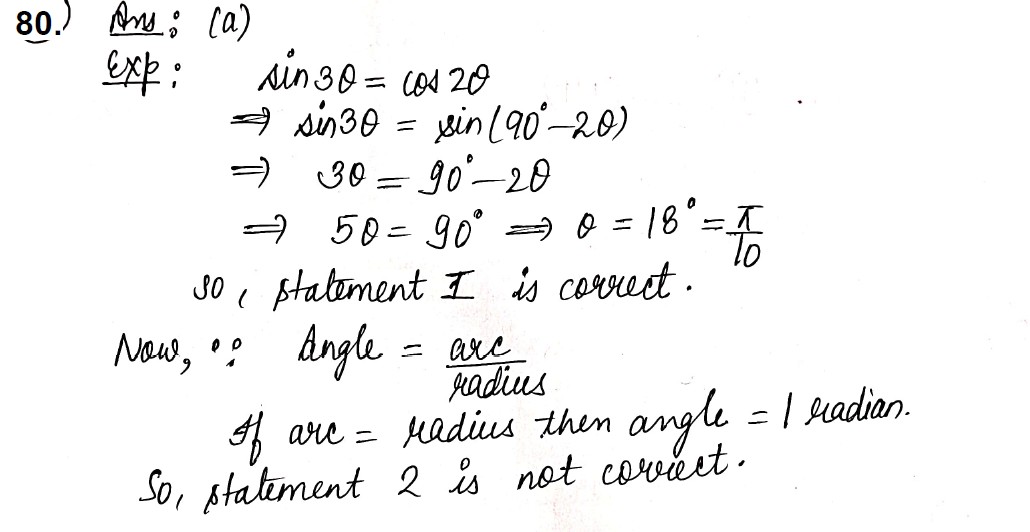 80.) Ans : (a)
Exp : sin3θ = cos 2θ
⇒ sin3θ = sin(90°–2θ)
⇒ 3θ = 90°–2θ
⇒ 5θ = 90° ⇒ θ = 18° = π/10
so, statement I is correct.
Now, ∵ Angle = arc/radius
If arc = radius then angle = 1 radian.
So, statement 2 is not correct.